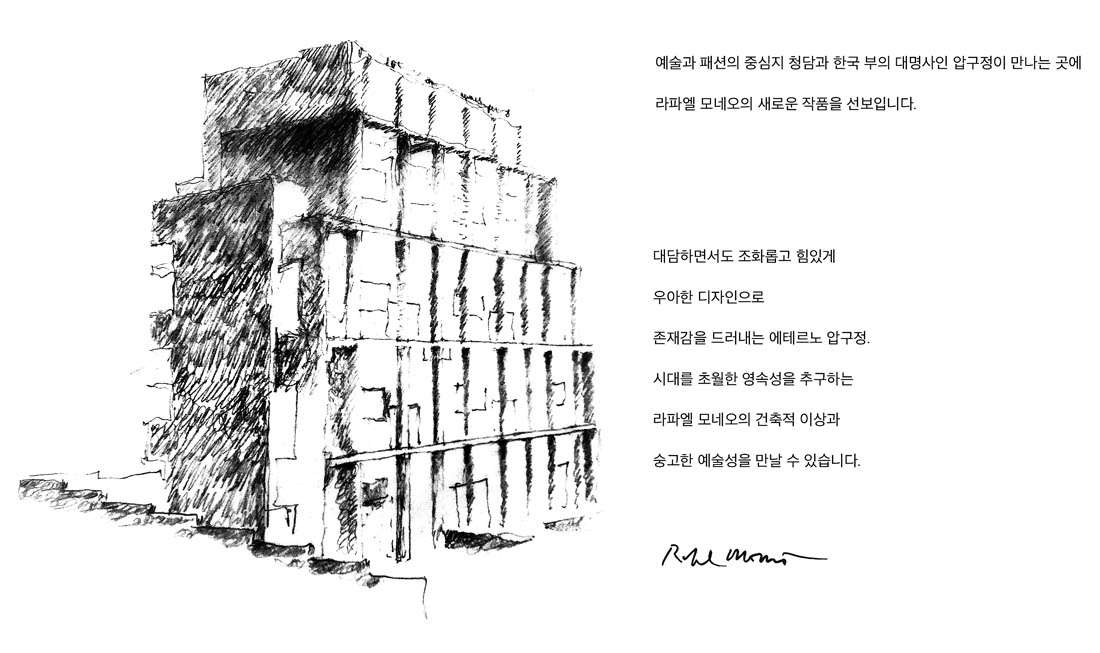 예술과 패션의 중심지 청담과 한국 부의 대명사인 압구정이 만나는 곳에
라파엘 모네오의 새로운 작품을 선보입니다.
대담하면서도 조화롭고 힘있게
우아한 디자인으로
존재감을 드러내는 에테르노 압구정.
시대를 초월한 영속성을 추구하는
라파엘 모네오의 건축적 이상과
숭고한 예술성을 만날 수 있습니다.